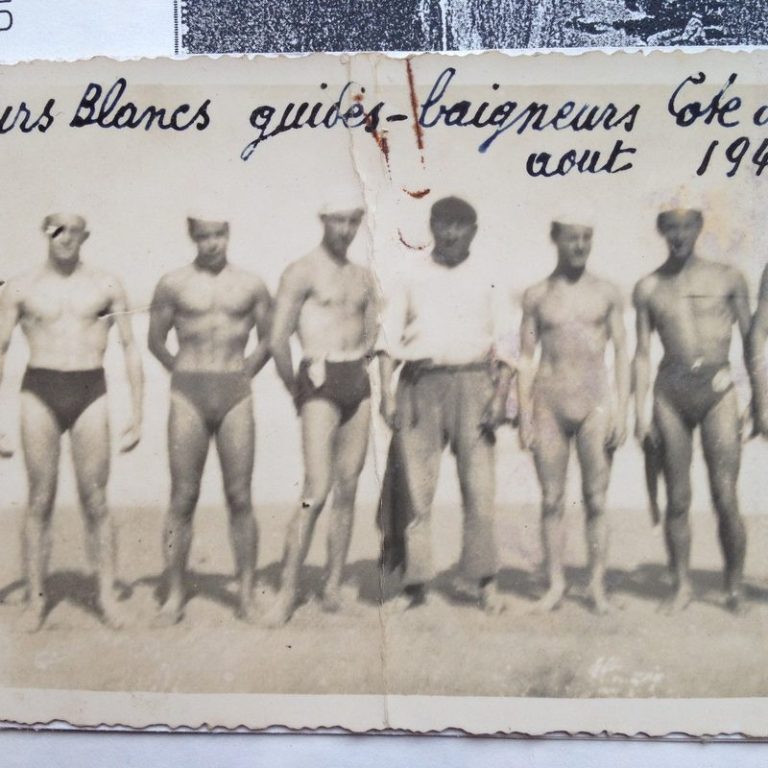 urs Blancs guides-baigneurs Cote d
aout 194